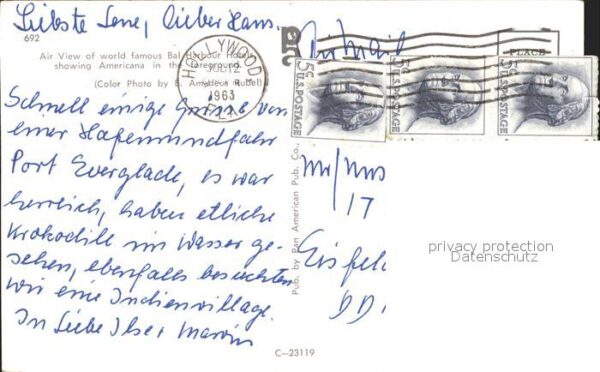 Liebste Lene, lieber Hans.
692
Air View of world famous Bal Harbour
showing Americana in the foreground.
(Color Photo by B. Amadeus Rubel)
HOLLYWOOD
JUL 12
1963
FLA.
Air Mail
PLACE
5c U.S. POSTAGE
5c U.S. POSTAGE
5c U.S. POSTAGE
Schnell einige Grüsse von
einer Hafenrundfahr
Port Everglade, es war
herrlich, haben etliche
Krokodille im Wasser ge-
sehen, ebenfalls besuchten
wir eine Indienvillage.
In Liebe Ilse
Pub. by Pan American Pub. Co.,
Mr/Mrs
17
Eisfel
DD
privacy protection
Datenschutz
C—23119